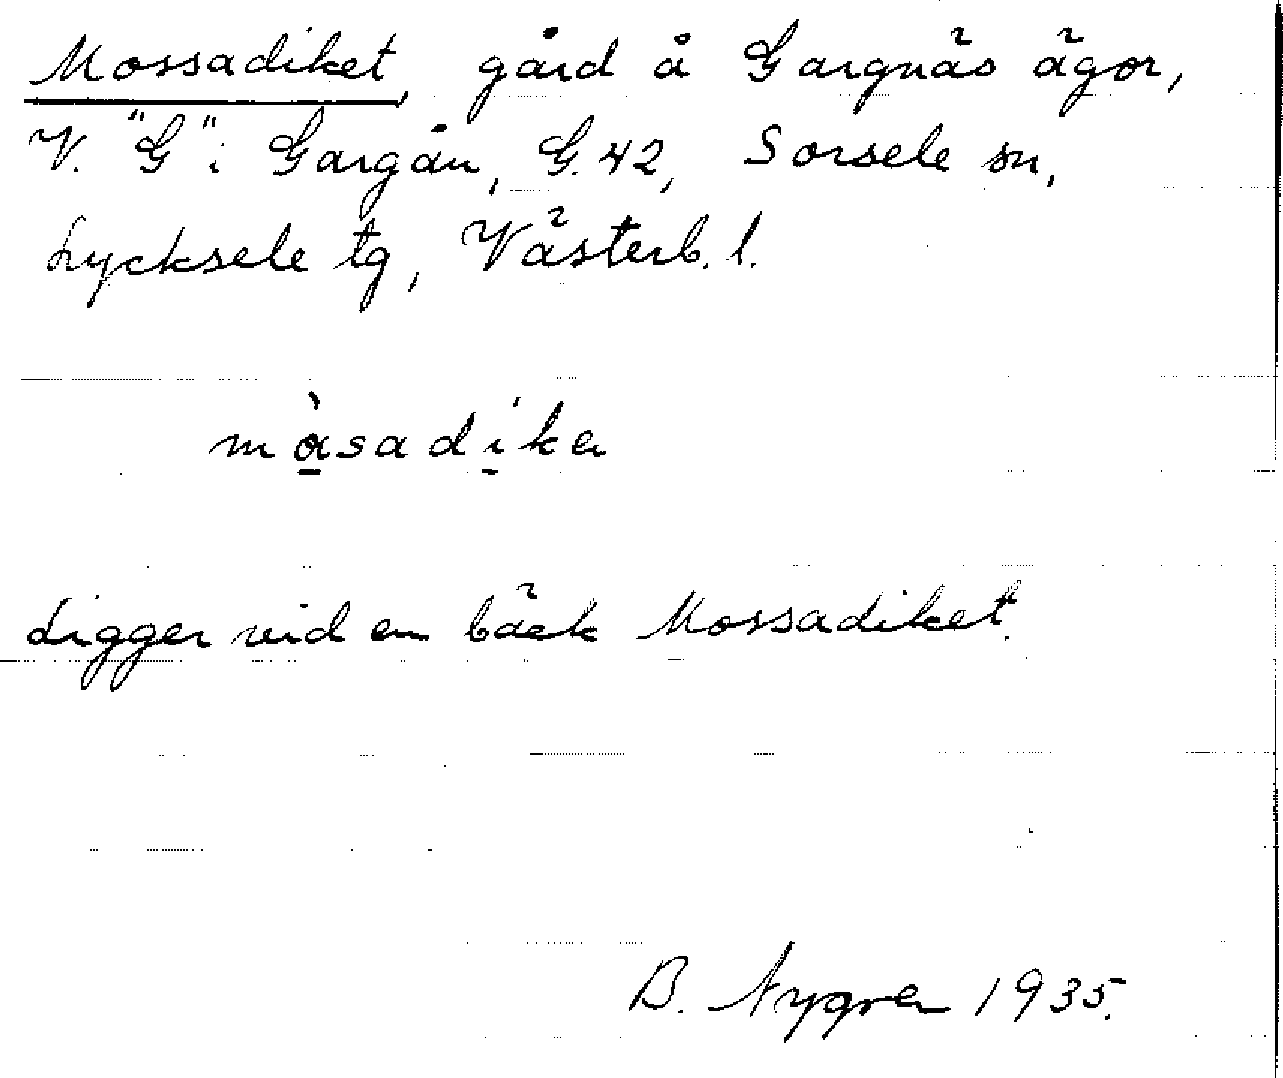 Mossadiket, gård å Gargnäs ägor,
V. "G" i Gargån, G. 42, Sorsele sn,
Lycksele tg, Västerb. l.
mɑ̱̀sadí̱ka
Ligger vid en bäck Mossadiket.
B. Nygren 1935.